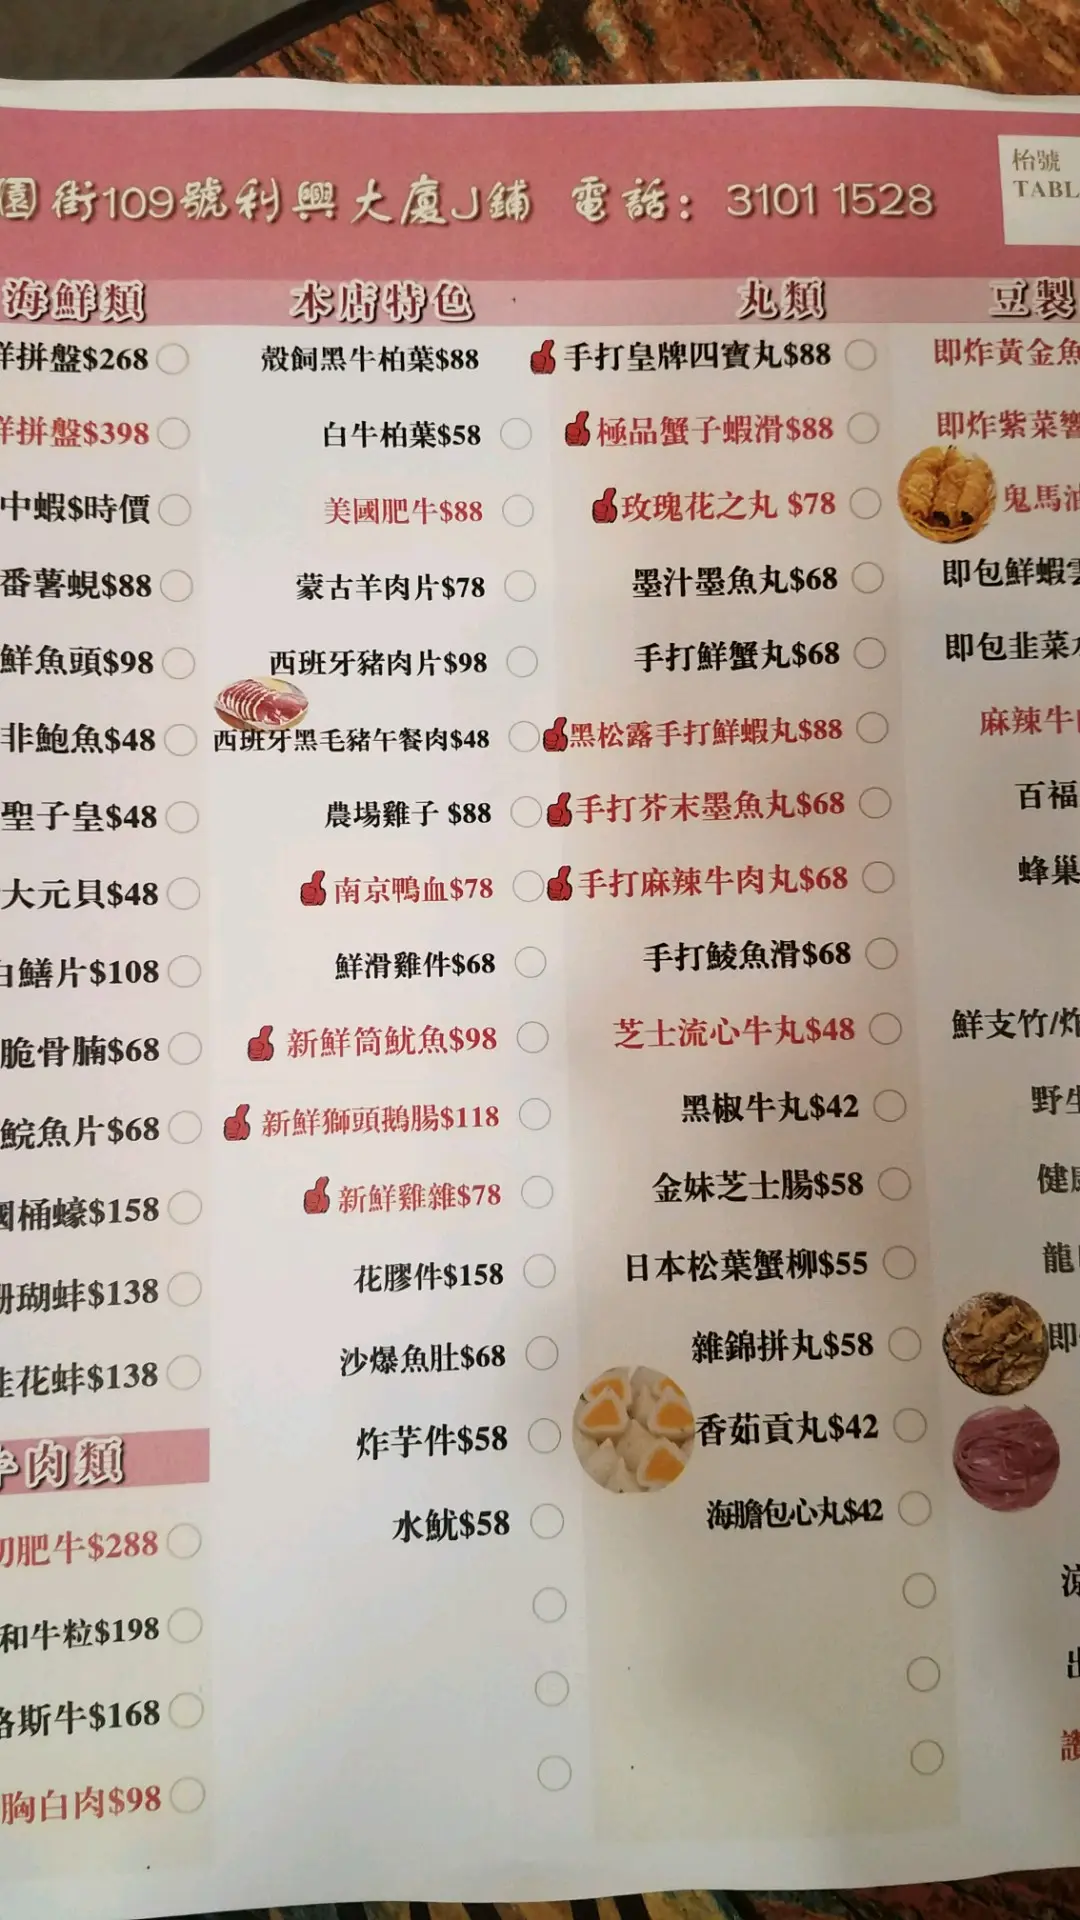 園街109號利興大廈J鋪 電話：3101 1528
枱號
TABL
海鮮類
拼盤$268
拼盤$398
中蝦$時價
番薯蜆$88
鮮魚頭$98
非鮑魚$48
聖子皇$48
大元貝$48
白鱔片$108
脆骨腩$68
鯇魚片$68
國桶蠔$158
珊瑚蚌$138
桂花蚌$138
牛肉類
切肥牛$288
和牛粒$198
格斯牛$168
胸白肉$98
本店特色
殼飼黑牛柏葉$88
白牛柏葉$58
美國肥牛$88
蒙古羊肉片$78
西班牙豬肉片$98
西班牙黑毛豬午餐肉$48
農場雞子 $88
南京鴨血$78
鮮滑雞件$68
新鮮筒魷魚$98
新鮮獅頭鵝腸$118
新鮮雞雜$78
花膠件$158
沙爆魚肚$68
炸芋件$58
水魷$58
丸類
手打皇牌四寶丸$88
極品蟹子蝦滑$88
玫瑰花之丸 $78
墨汁墨魚丸$68
手打鮮蟹丸$68
黑松露手打鮮蝦丸$88
手打芥末墨魚丸$68
手打麻辣牛肉丸$68
手打鯪魚滑$68
芝士流心牛丸$48
黑椒牛丸$42
金妹芝士腸$58
日本松葉蟹柳$55
雜錦拼丸$58
香茹貢丸$42
海膽包心丸$42
豆製
即炸黃金魚
即炸紫菜響
鬼馬油
即包鮮蝦雲
即包韭菜水
麻辣牛
百福
蜂巢
鮮支竹/炸
野生
健康
龍
即
涼
出
讚